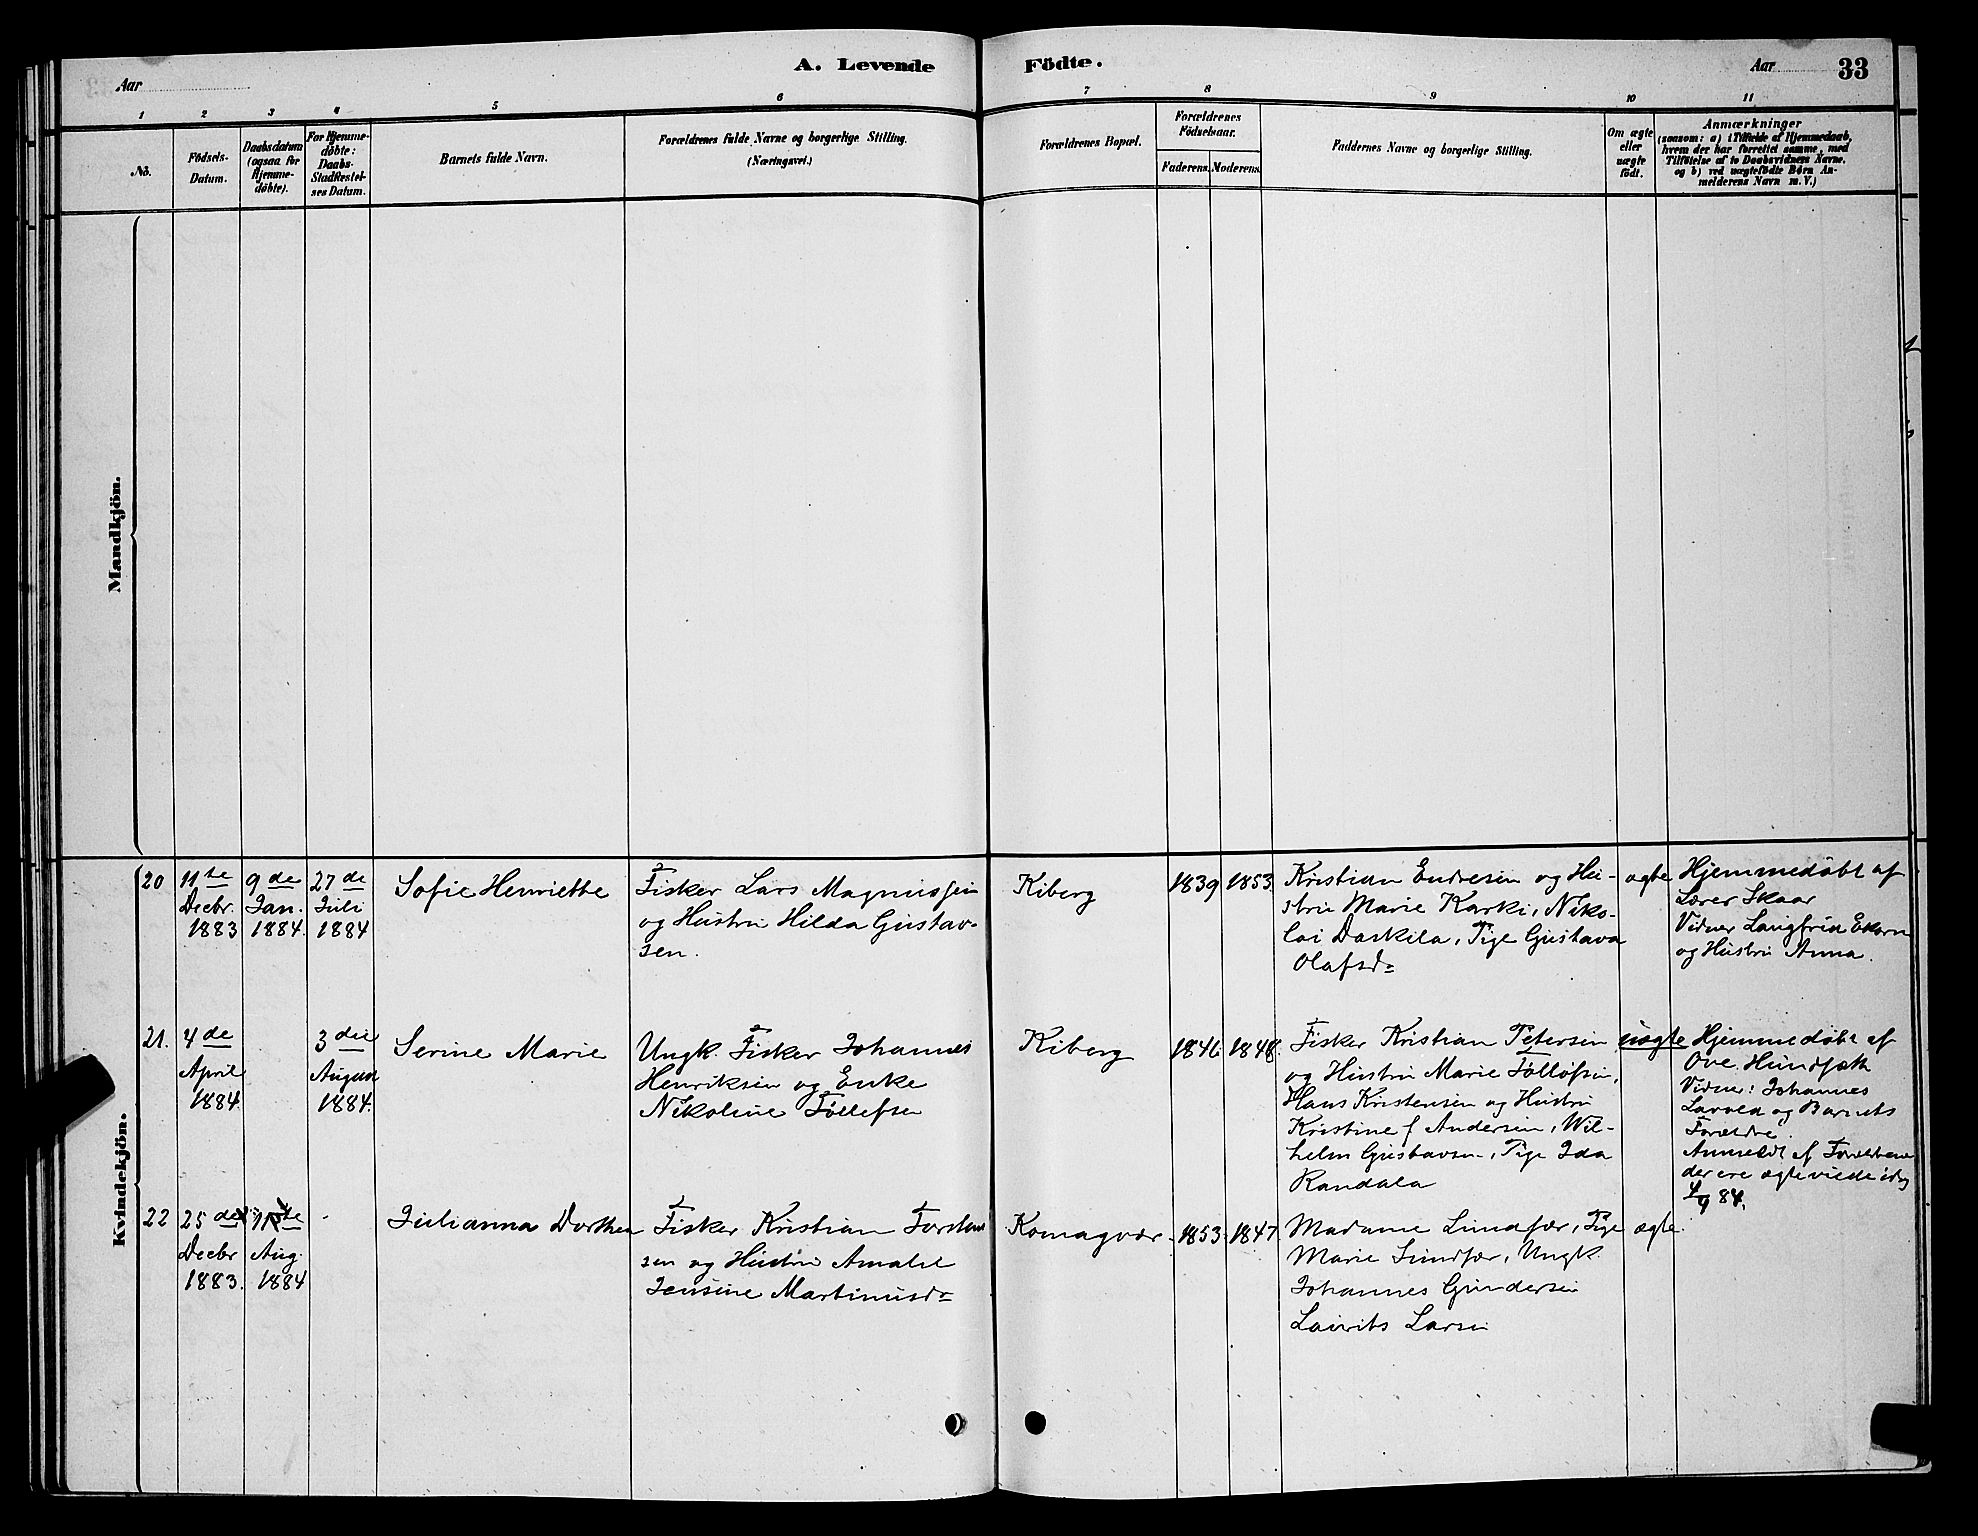 A. Levende Födte.
Aar
Aar 33
1 2 3 4 5 6 7 8 9 10 11
No.
Födsels-
Datum.
Daabsdatum
(ogsaa for
Hjemme-
döbte).
For Hjemme-
döbte:
Daabs-
Stadfæstel-
ses Datum.
Barnets fulde Navn.
Forældrenes fulde Navne og borgerlige Stilling.
(Næringsvei.)
Forældrenes Bopæl.
Forældrenes
Födselsaar.
Faderens. Moderens.
Faddernes Navne og borgerlige Stilling.
Om ægte
eller
uægte
födt.
Anmærkninger
(saasom: a) i Tilfælde af Hjemmedaab,
hvem der har forrettet samme, med
Tilföielse af to Daabsvidners Navne,
og b) ved uægtefödte Børn An-
melderens Navn m. V.)
Mandkjön.
Kvindekjön.
20
11te
Decbr.
1883
9de
Jan.
1884.
27de
Juli
1884
Sofie Henriette
Fisker Lars Magnussen
og Hustru Hilda Gustav-
sen.
Kiberg
1839
1853
Kristian Endresen og Hu-
stru Marie Karki, Niko-
lai Daskila, Pige Gustava
Olafsd.
ægte
Hjemmedøbt af
Lærer Skaar
Vidner Langfrid Ekorn
og Hustru Anna.
21.
4de
April
1884.
3die
August
1884.
Serine Marie
Ungk. Fisker Johannes
Henriksen og Enke
Nikoline Tøllefsen
Kiberg
1846
1848.
Fisker Kristian Petersen
og Hustru Marie Tølløfsen,
Hans Kristensen og Hustru
Kristine f Andersen, Wil-
helm Gustavsen, Pige Ida
Randala
uægte
Hjemmedøbt af
Ove
Vidner: Johannes
og Barnets
Forældre.
Anmeldt af Forældrene
der ere ægteviede
84.
22
25de
Decbr
1883.
Aug.
1884
Julianna Dorthea
Fisker Kristian
sen og Hustru Amalie
Jensine Martinusd.
Komagvær
1853
1847
Madame Lundfær, Pige
Marie Lundfær, Ungk.
Johannes Gundersen
Laurits Larsen
ægte.